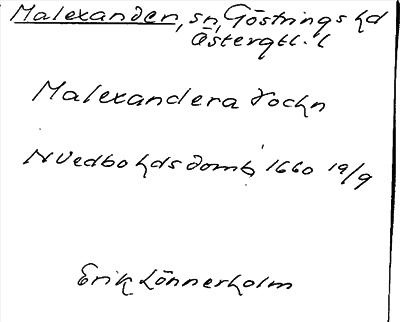 Malexander, sn, Göstrings hd
Östergtl. l
Malexandera Sochn
N Vedbo hds domb, 1660 19/9
Erik Lönnerholm